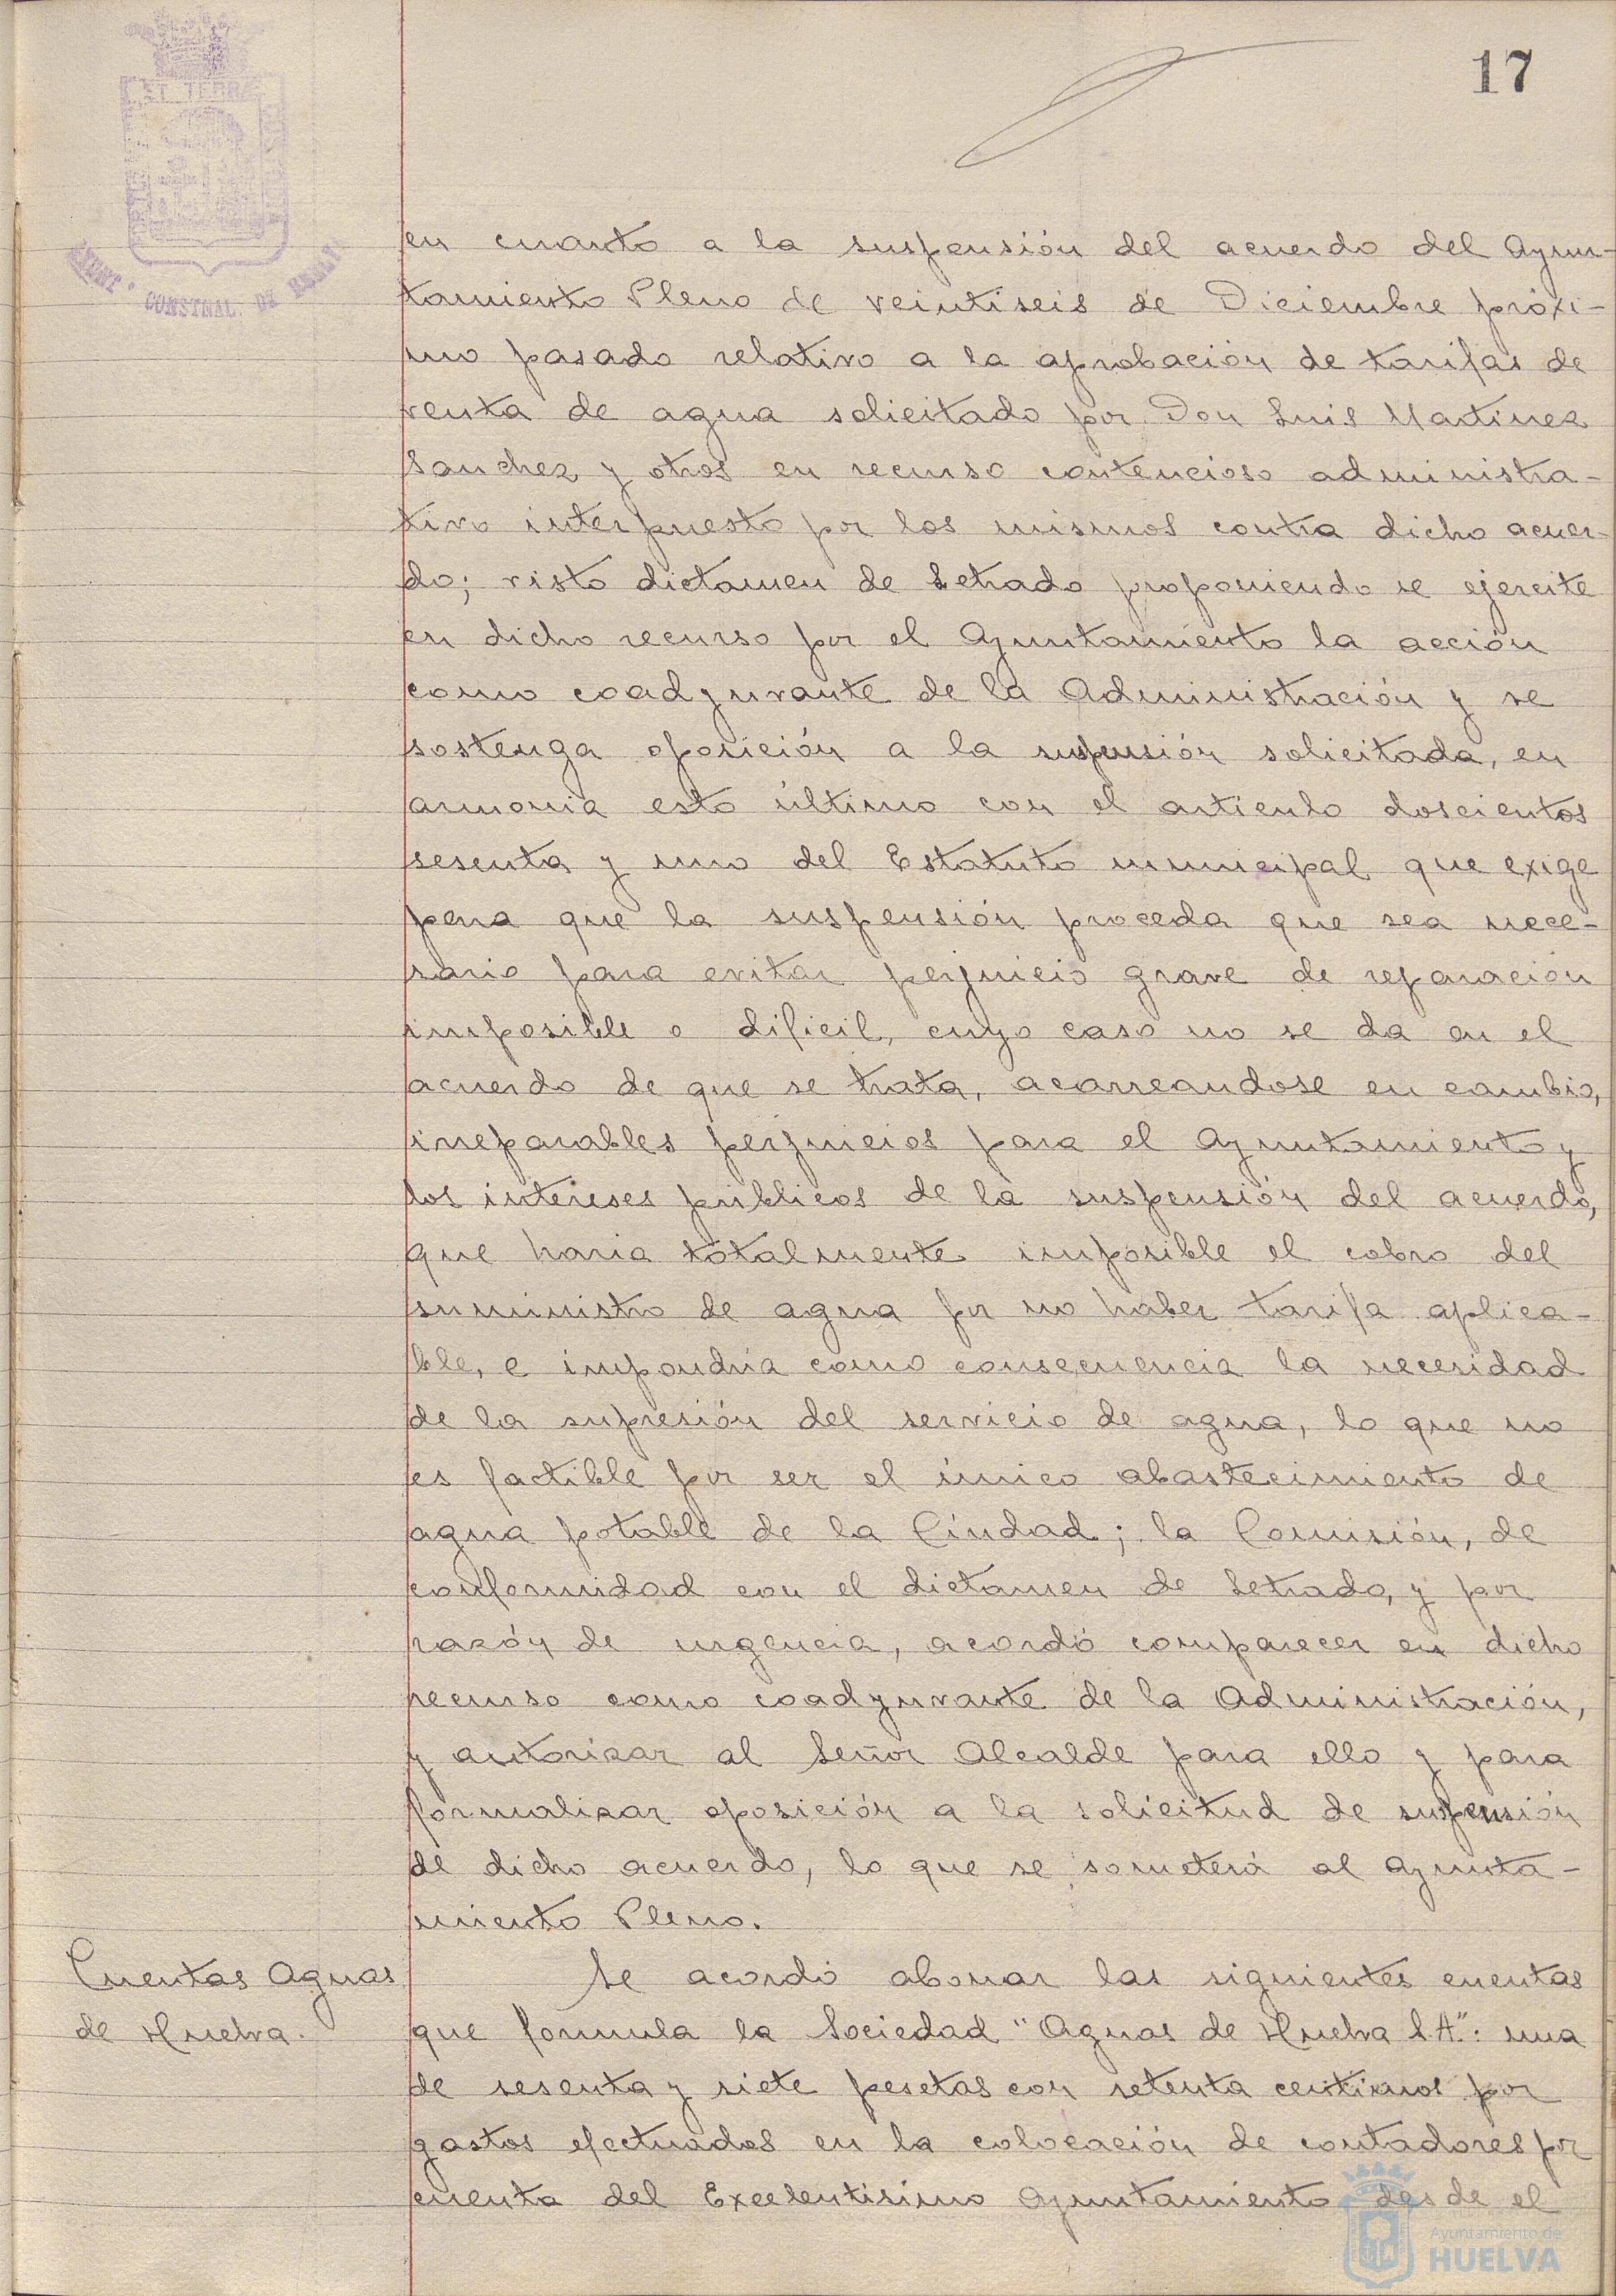 17
ET TERRÆ
CONSTNAL. DE
en cuanto a la suspensión del acuerdo del Ayun-
tamiento Pleno de veintiseis de Diciembre próxi-
mo pasado relativo a la aprobación de tarifas de
venta de agua solicitado por Don Luis Martinez
Sanchez y otros en recurso contencioso administra-
tivo interpuesto por los mismos contra dicho acuer-
do; visto dictamen de Letrado proponiendo se ejercite
en dicho recurso por el Ayuntamiento la acción
como coadyuvante de la Administración y se
sostenga oposición a la suspensión solicitada, en
armonia esto último con el articulo doscientos
sesenta y uno del Estatuto municipal que exige
para que la suspensión proceda que sea nece-
sario para evitar perjuicio grave de reparación
imposible o dificil, cuyo caso no se da en el
acuerdo de que se trata, acarreandose en cambio,
irreparables perjuicios para el Ayuntamiento y
los intereses públicos de la suspensión del acuerdo,
que haria totalmente imposible el cobro del
suministro de agua por no haber tarifa aplica-
ble, e impondria como consecuencia la necesidad
de la supresión del servicio de agua, lo que no
es factible por ser el único abastecimiento de
agua potable de la Ciudad; la Comisión, de
conformidad con el dictamen de Letrado, y por
razón de urgencia, acordó comparecer en dicho
recurso como coadyuvante de la Administración,
y autorizar al Señor Alcalde para ello y para
formalizar oposición a la solicitud de suspensión
de dicho acuerdo, lo que se someterá al Ayunta-
miento Pleno.
Cuentas Aguas
de Huelva.
Se acordó abonar las siguientes cuentas
que formula la Sociedad "Aguas de Huelva S.A.": una
de sesenta y siete pesetas con setenta centimos por
gastos efectuados en la colocación de contadores por
cuenta del Excelentisimo Ayuntamiento desde el
Ayuntamiento de
HUELVA